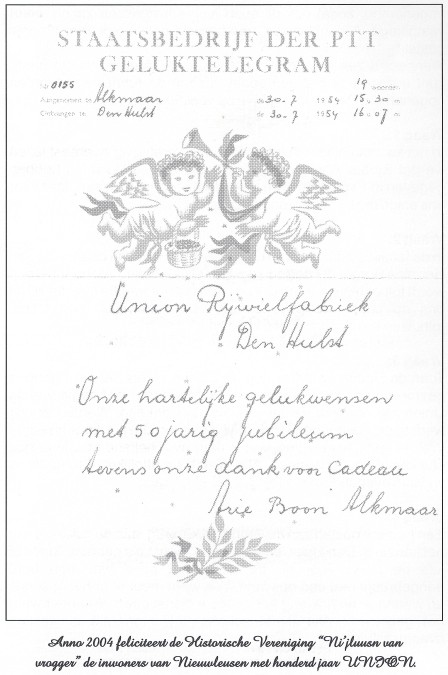 STAATSBEDRIJF DER PTT
GELUKTELEGRAM
No 0155 19 woorden
Aangenomen te Alkmaar de 30-7 1954 15 u 30 m
Ontvangen te Den Hulst de 30-7 1954 16 u 07 m
Union Rijwielfabriek
Den Hulst
Onze hartelijke gelukwensen
met 50 jarig jubileum
tevens onze dank voor Cadeau
Arie Boon Alkmaar
Anno 2004 feliciteert de Historische Vereniging "Ni'jluusn van
vrogger" de inwoners van Nieuwleusen met honderd jaar UNION.